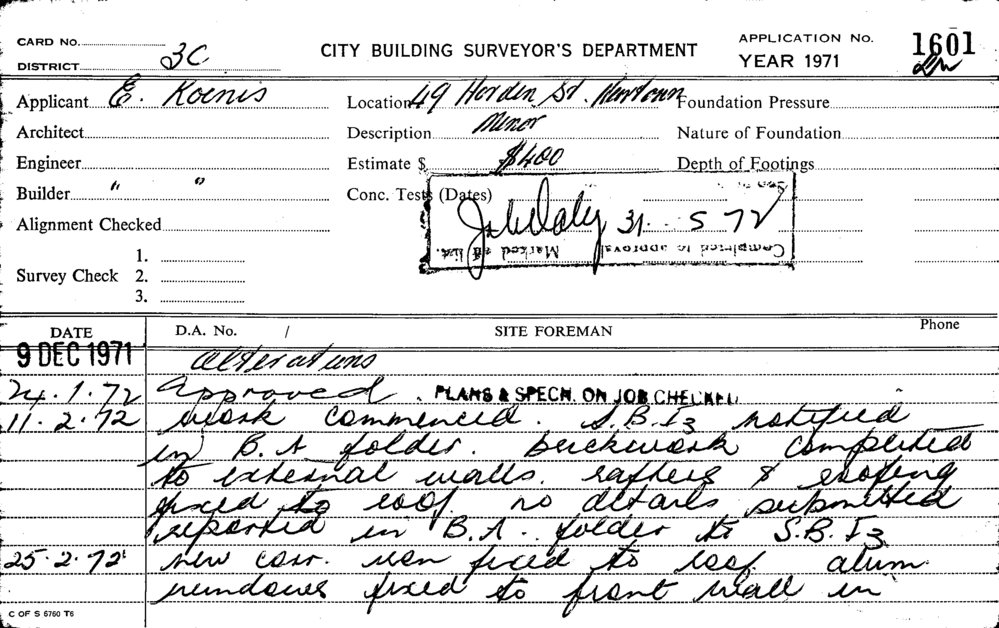 CARD No.
DISTRICT 3C
CITY BUILDING SURVEYOR'S DEPARTMENT
APPLICATION No. 1601
YEAR 1971
Applicant E. Koenis
Location 49 Horden St. Newtown
Foundation Pressure
Architect
Description Minor
Nature of Foundation
Engineer
Estimate $ $400
Depth of Footings
Builder " "
Conc. Tests (Dates)
Alignment Checked
31 . 5 72
Completed to approval Marked off list.
1.
Survey Check 2.
3.
DATE D.A. No. / SITE FOREMAN Phone
9 DEC 1971 Alterations
24.1.72 Approved . PLANS & SPECN. ON JOB CHECKED
11.2.72 work commenced. S.B.I3 notified
in B.A folder. brickwork completed
to external walls. rafters & roofing
fixed to roof no details submitted
reported in B.A.. folder to S.B.I3
25.2.72 new corr. iron fixed to roof alum.
windows fixed to front wall in
C OF S 6760 T6